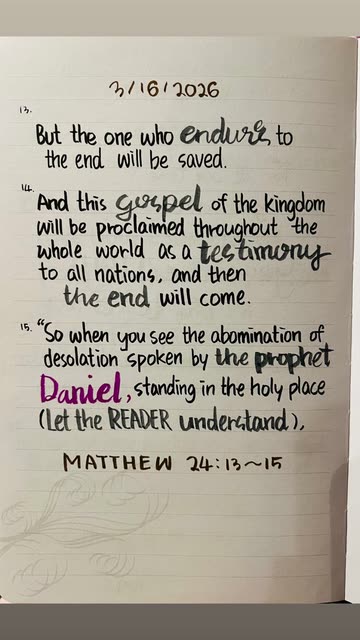 3/16/2026
13.
But the one who endures to
the end will be saved.
14.
And this gospel of the kingdom
will be proclaimed throughout the
whole world as a testimony
to all nations, and then
the end will come.
15. "So when you see the abomination of
desolation spoken by the prophet
Daniel, standing in the holy place
(let the READER understand),
MATTHEW 24:13~15